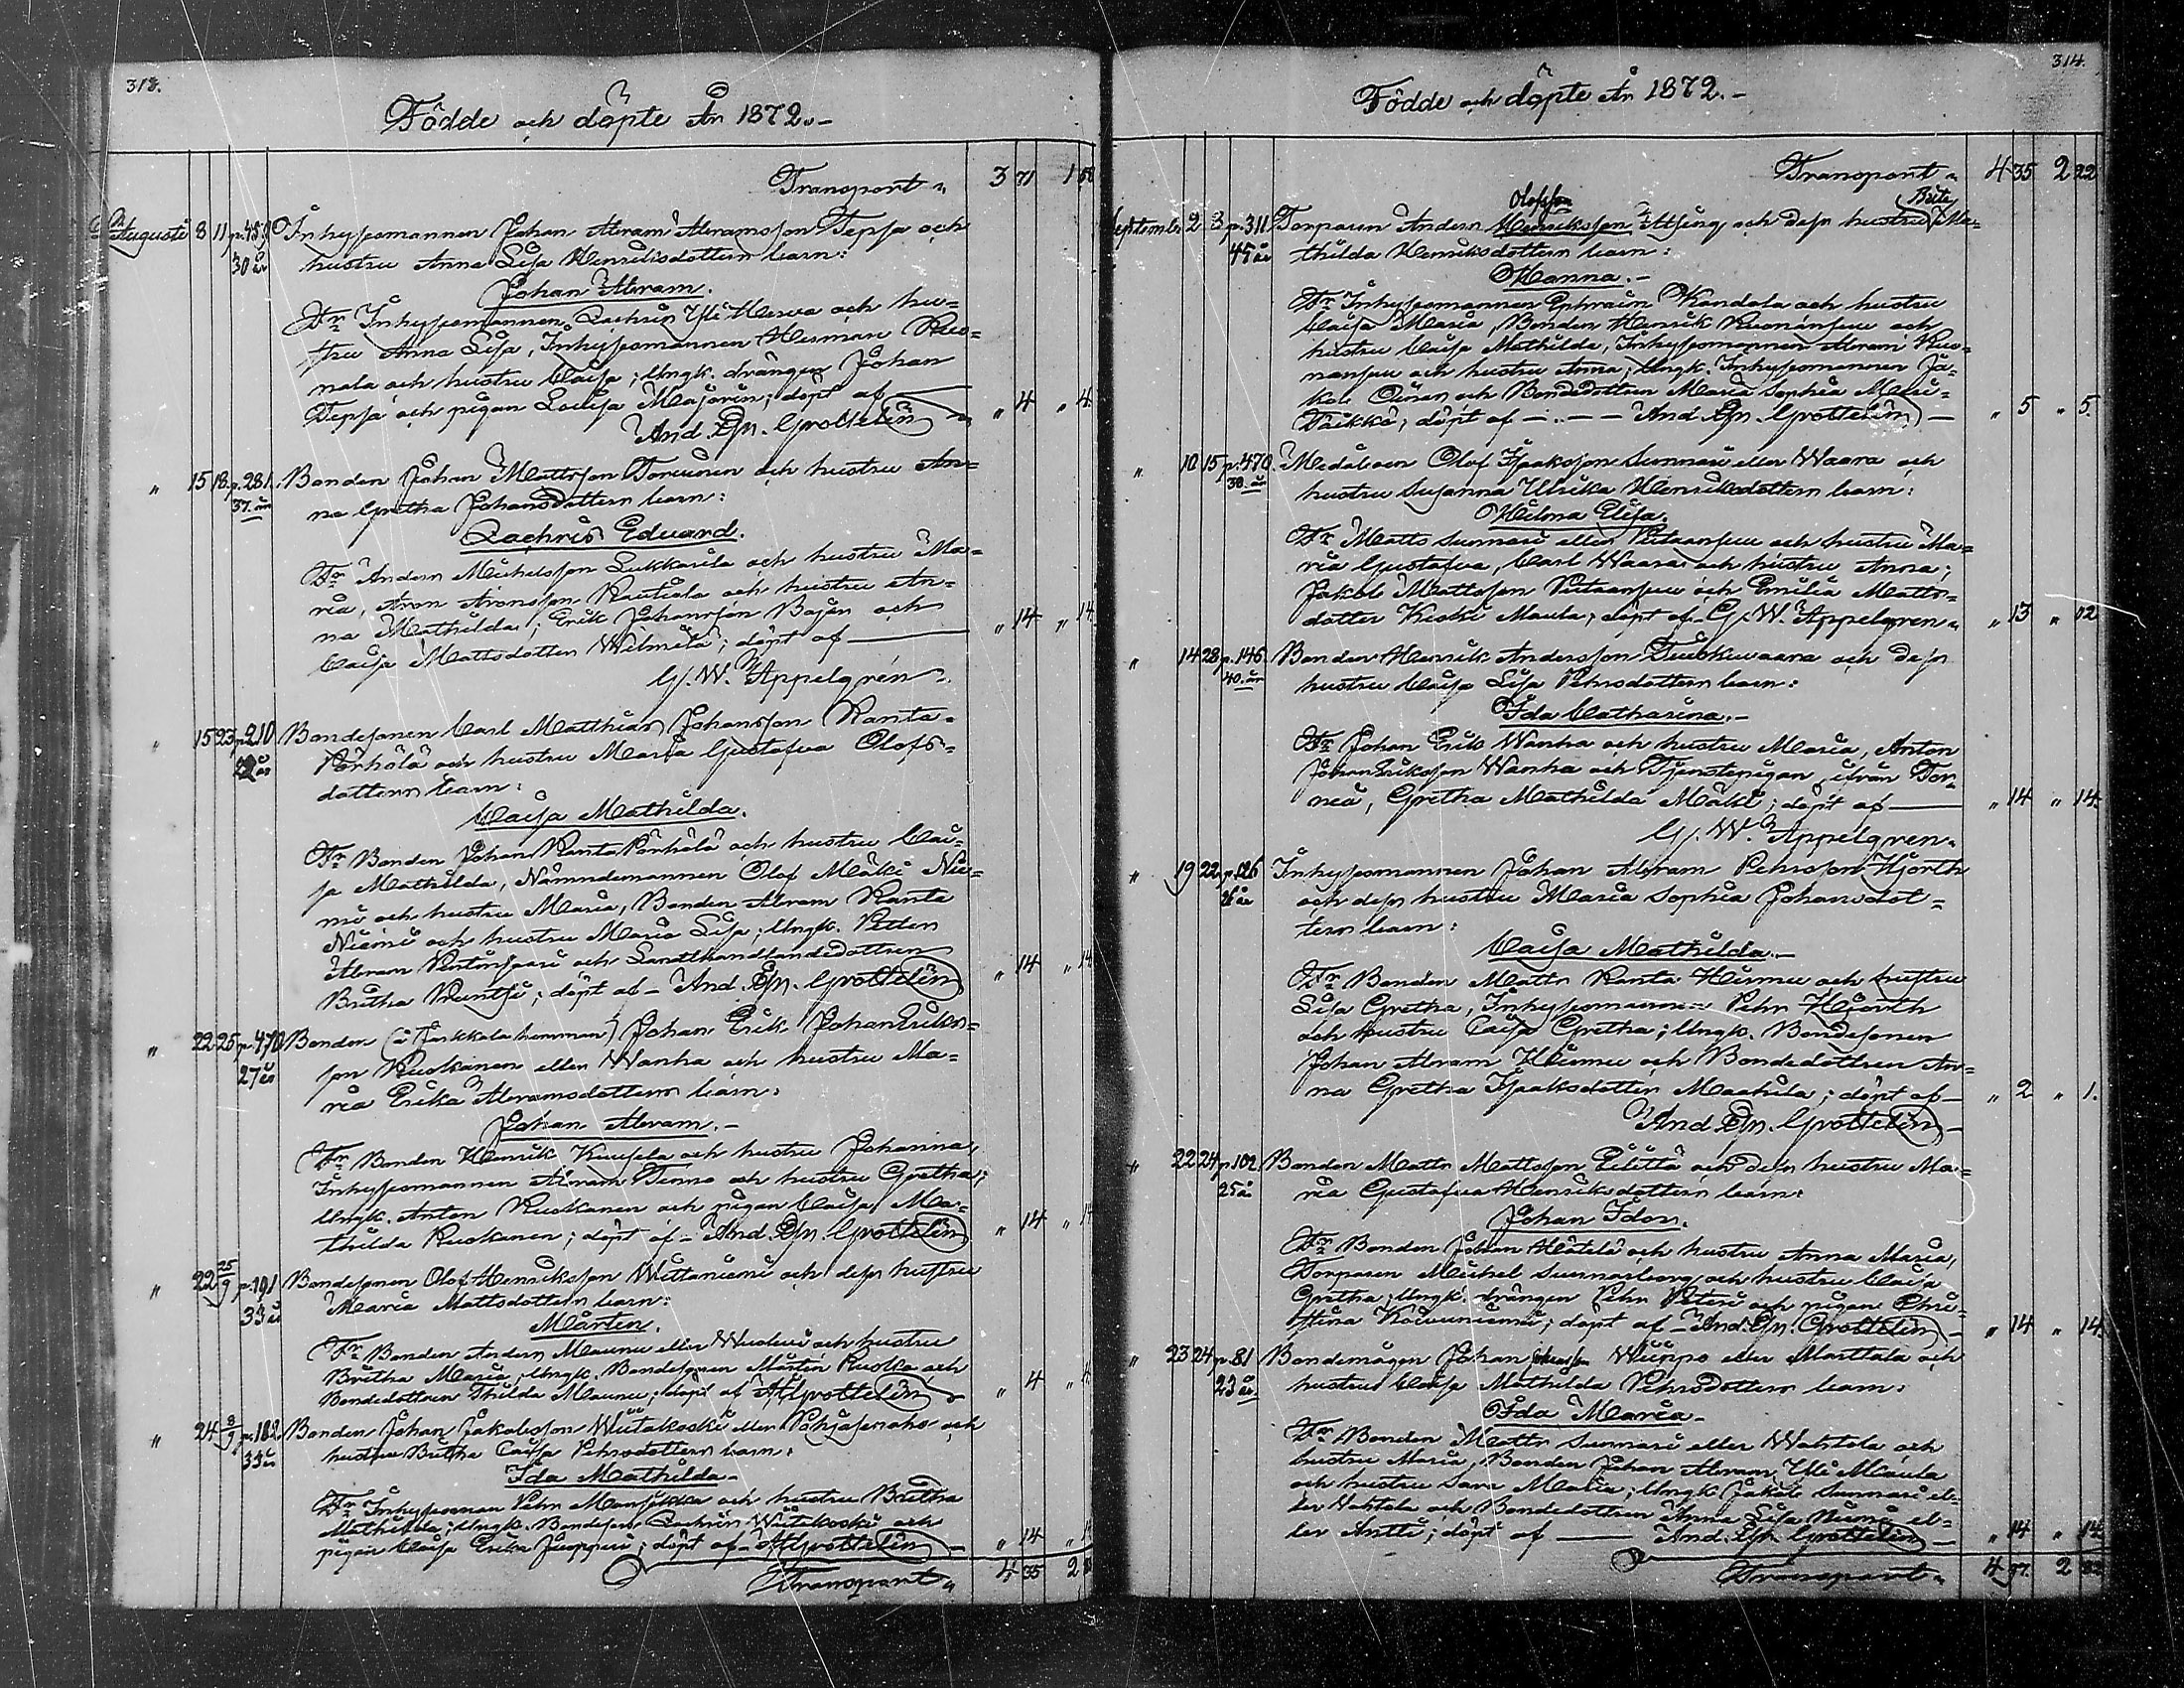 313.
Födde och döpte År 1872.-
Transport " 3 71 1
Augusti 8 11 p. 45 Inhysesmannen Johan Abram Abramsson Tepsa och
30 år hustru Anna Lisa Henriksdotters barn:
Johan Abram.
Fr. Inhysesmannen Zachris Yli Herva och hu=
stru Anna Lisa, Inhysesmannen Herman Kuo=
nala och hustru Caisa; Ungk. drängen Johan
Tepsa och pigan Lovisa Majorin; döpt af — " 4 " 4
And. Joh. Grottelin
" 15 18 p. 281. Bonden Johan Mattsson Torvinen och hustru An=
37. år na Gretha Johansdotters barn:
Zachris Eduard.
Fr. Anders Michelsson Lukkarila och hustru Ma=
ria, Aron Aronsson Rautiala och hustru An=
na Mathilda; Erik Johansson Bajen och
Caisa Mattsdotter Wilmilä; döpt af — " 14 " 14
G. W. Appelgrén.
" 15 23 p. 210 Bondesonen Carl Matthias Johansson Ranta=
22 år Pörhölä och hustru Maria Gustafva Olofs=
dotters barn:
Caisa Mathilda.
Fr. Bonden Johan Ranta Pörhölä och hustru Cai=
sa Mathilda, Nämndemannen Olof Mäki Nie=
mi och hustru Maria, Bonden Abram Ranta
Niemi och hustru Maria Lisa; Ungk. Petter
Abram Portimojärvi och Lanthandlandedottren
Britha Runtsi; döpt af - And. Joh. Grottelin " 14 " 14
" 22 25 p. 470 Bonden (å Jarkkala hemman) Johan Erik Johan Eriks=
27 år son Ruokanen eller Wanha och hustru Ma=
ria Erika Abramsdotters barn:
Johan Abram.-
Fr. Bonden Henrik Kiusela och hustru Johanna,
Inhysesmannen Abram Tenno och hustru Gretha;
Ungk. Anton Ruokanen och pigan Caisa Ma=
thilda Ruokanen; döpt af - And. Joh. Grottelin " 14 "
" 22 25/9 p. 191 Bondesonen Olof Henriksson Wittaniemi och dess hustru
33 år Maria Mattsdotters barn:
Mårten.
Fr. Bonden Anders Maunu eller Wuolevi och hustru
Britha Maria, Ungk. Bondesonen Mårten Ruoka och
Bondedottren Thilda Maunu; döpt af A Grottelin " 4 "
" 24 8/9 p. 182. Bonden Johan Jakobsson Wiitakoski eller Pohjasenaho och
33 år hustru Britha Caisa Pehrsdotters barn:
Ida Mathilda-
Fr. Inhysesman Pehr Mansikka och hustru Britha
Mathilda; Ungk. Bondeson Zachris Wiitakoski och
pigan Caisa Erika Juoppari; döpt af - A Grottelin " 14 "
Transport " 4 35 2
314.
Födde och döpte År 1872.-
Transport " 4 35 2 22
Olofsson Brita
September 2 3 p. 311 Torparen Anders Henriksson Alsing och dess hustru Ma=
45 år thilda Henriksdotters barn:
Hanna.-
Fr. Inhysesmannen Ephraim Kandala och hustru
Caisa Maria, Bonden Henrik Ruonansuu och
hustru Caisa Mathilda, Inhysesmannen Abram Ruo=
nansuu och hustru Anna; Ungk. Inhysesmannen Ja=
kob Oinas och Bondedottren Maria Sophia Mari=
Paikka; döpt af —..— And. Joh. Grottelin — " 5 " 5.
" 10 15 p. 470. Medåboen Olof Isaksson Sunnari eller Waara och
38. år hustru Susanna Ulrika Henriksdotters barn:
Hilma Elisa.
Fr. Matts Sunnari eller Viitaansuu och hustru Ma=
ria Gustafva, Carl Waara och hustru Anna;
Jakob Mattsson Viitaansuu och Emilia Matts=
dotter Keski Maula; döpt af G. W. Appelgren " " 13 " 12
" 14 28 p. 146 Bonden Henrik Andersson Tuiskuvaara och dess
40. år hustru Caisa Lisa Pehrsdotters barn:
Ida Catharina.-
Fr. Johan Erik Wanha och hustru Maria, Anton
Johan Eriksson Wanha och Tjenstepigan, ifrån Tor=
neå, Gretha Mathilda Mäki; döpt af — " 14 " 14.
G. W. Appelgren.
" 19 22 p. 126 Inhysesmannen Johan Abram Pehrsson Hjorth
26 år och dess hustru Maria Sophia Johansdot=
ters barn:
Caisa Mathilda.-
Fr. Bonden Matts Ranta Heimu och hustru
Lisa Gretha, Inhysesmannen Pehr Hjorth
och hustru Caisa Gretha; Ungk. Bondesonen
Johan Abram Heimu och Bondedottren An=
na Gretha Isaksdotter Maahila; döpt af — " 2 " 1.
And. Joh. Grottelin
" 22 24 p. 102 Bonden Matts Mattsson Peilitta och dess hustru Ma=
25 år ria Gustafva Henriksdotters barn:
Johan Idor.
Fr. Bonden Johan Hätelä och hustru Anna Maria,
Torparen Michel Sunnarborg och hustru Caisa
Gretha; Ungk. drängen Pehr Peteri och pigan Chri=
stina Koivuniemi; döpt af - And. Joh. Grottelin - " 14 " 14.
" 23 24 p. 81 Bondemågen Johan Johansson Wiippo eller Marttala och
23 år hustru Caisa Mathilda Pehrsdotters barn:
Ida Maria-
Fr. Bonden Matts Sunnari eller Wahtola och
hustru Maria, Bonden Johan Abram Yli Maula
och hustru Sara Maria; Ungk. Jakob Sunnari el=
ler Wahtola och Bondedottren Anna Lisa Niemi el=
ler Antti; döpt af — And. Joh. Grottelin — " 14 " 14
Transport " 4 97. 2